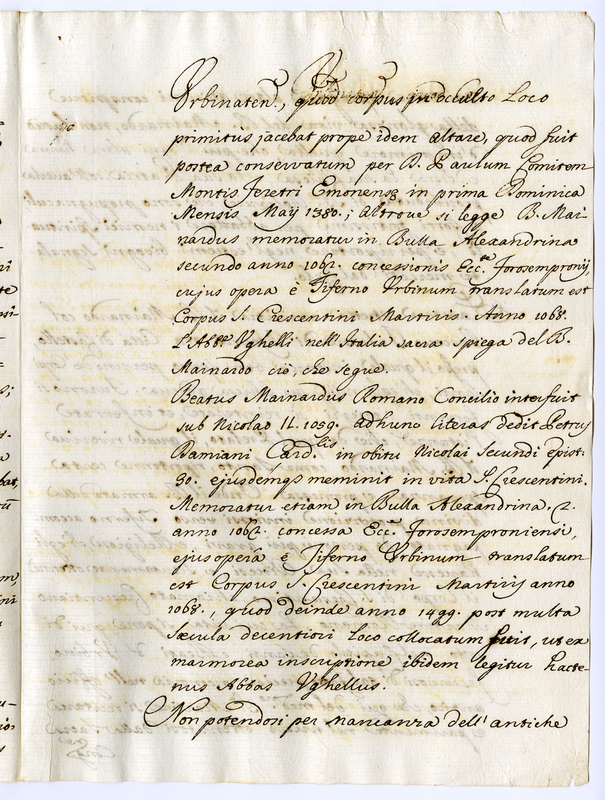 Urbinaten̄, quod corpus in occulto Loco
primitùs jacebat prope idem altare, quod fuit
postea conservatum per B. Paulum Comitem
Montis Feretri Emonensẽ in prima Dominica
Mensis Maÿ 1380.; altrove si legge B. Mai-
nardus memoratur in Bulla Alexandrina
secundo anno 1062. concessionis Ecc.æ Forosempronij,
cujus opera è Tiferno Urbinum translatum est
Corpus S. Crescentini Martiris. Anno 1068.
L'Abb.e Ughelli nell'Italia sacra spiega del B.
Mainardo ciò, che segue.
Beatus Mainardus Romano Concilio interfuit
sub Nicolao II. 1059. ad hunc literas dedit Petrus
Damiani Card.lis in obitu Nicolai Secundi Epist.
30. ejusdemq́s meminit in vita S. Crescentini.
Memoratur etiam in Bulla Alexandrina. 2.
anno 1062. concessa Ecc. Forosemproniensi,
ejus operâ è Tiferno Urbinum translatum
est Corpus S. Crescentini Martirij anno
1068., quod deinde anno 1499. post multa
sæcula decentiori Loco collocatum fuit, ut ex
marmorea inscriptione ibidem legitur hacte-
nus Abbas Ughellus.
Non potendosi per mancanza dell'antiche